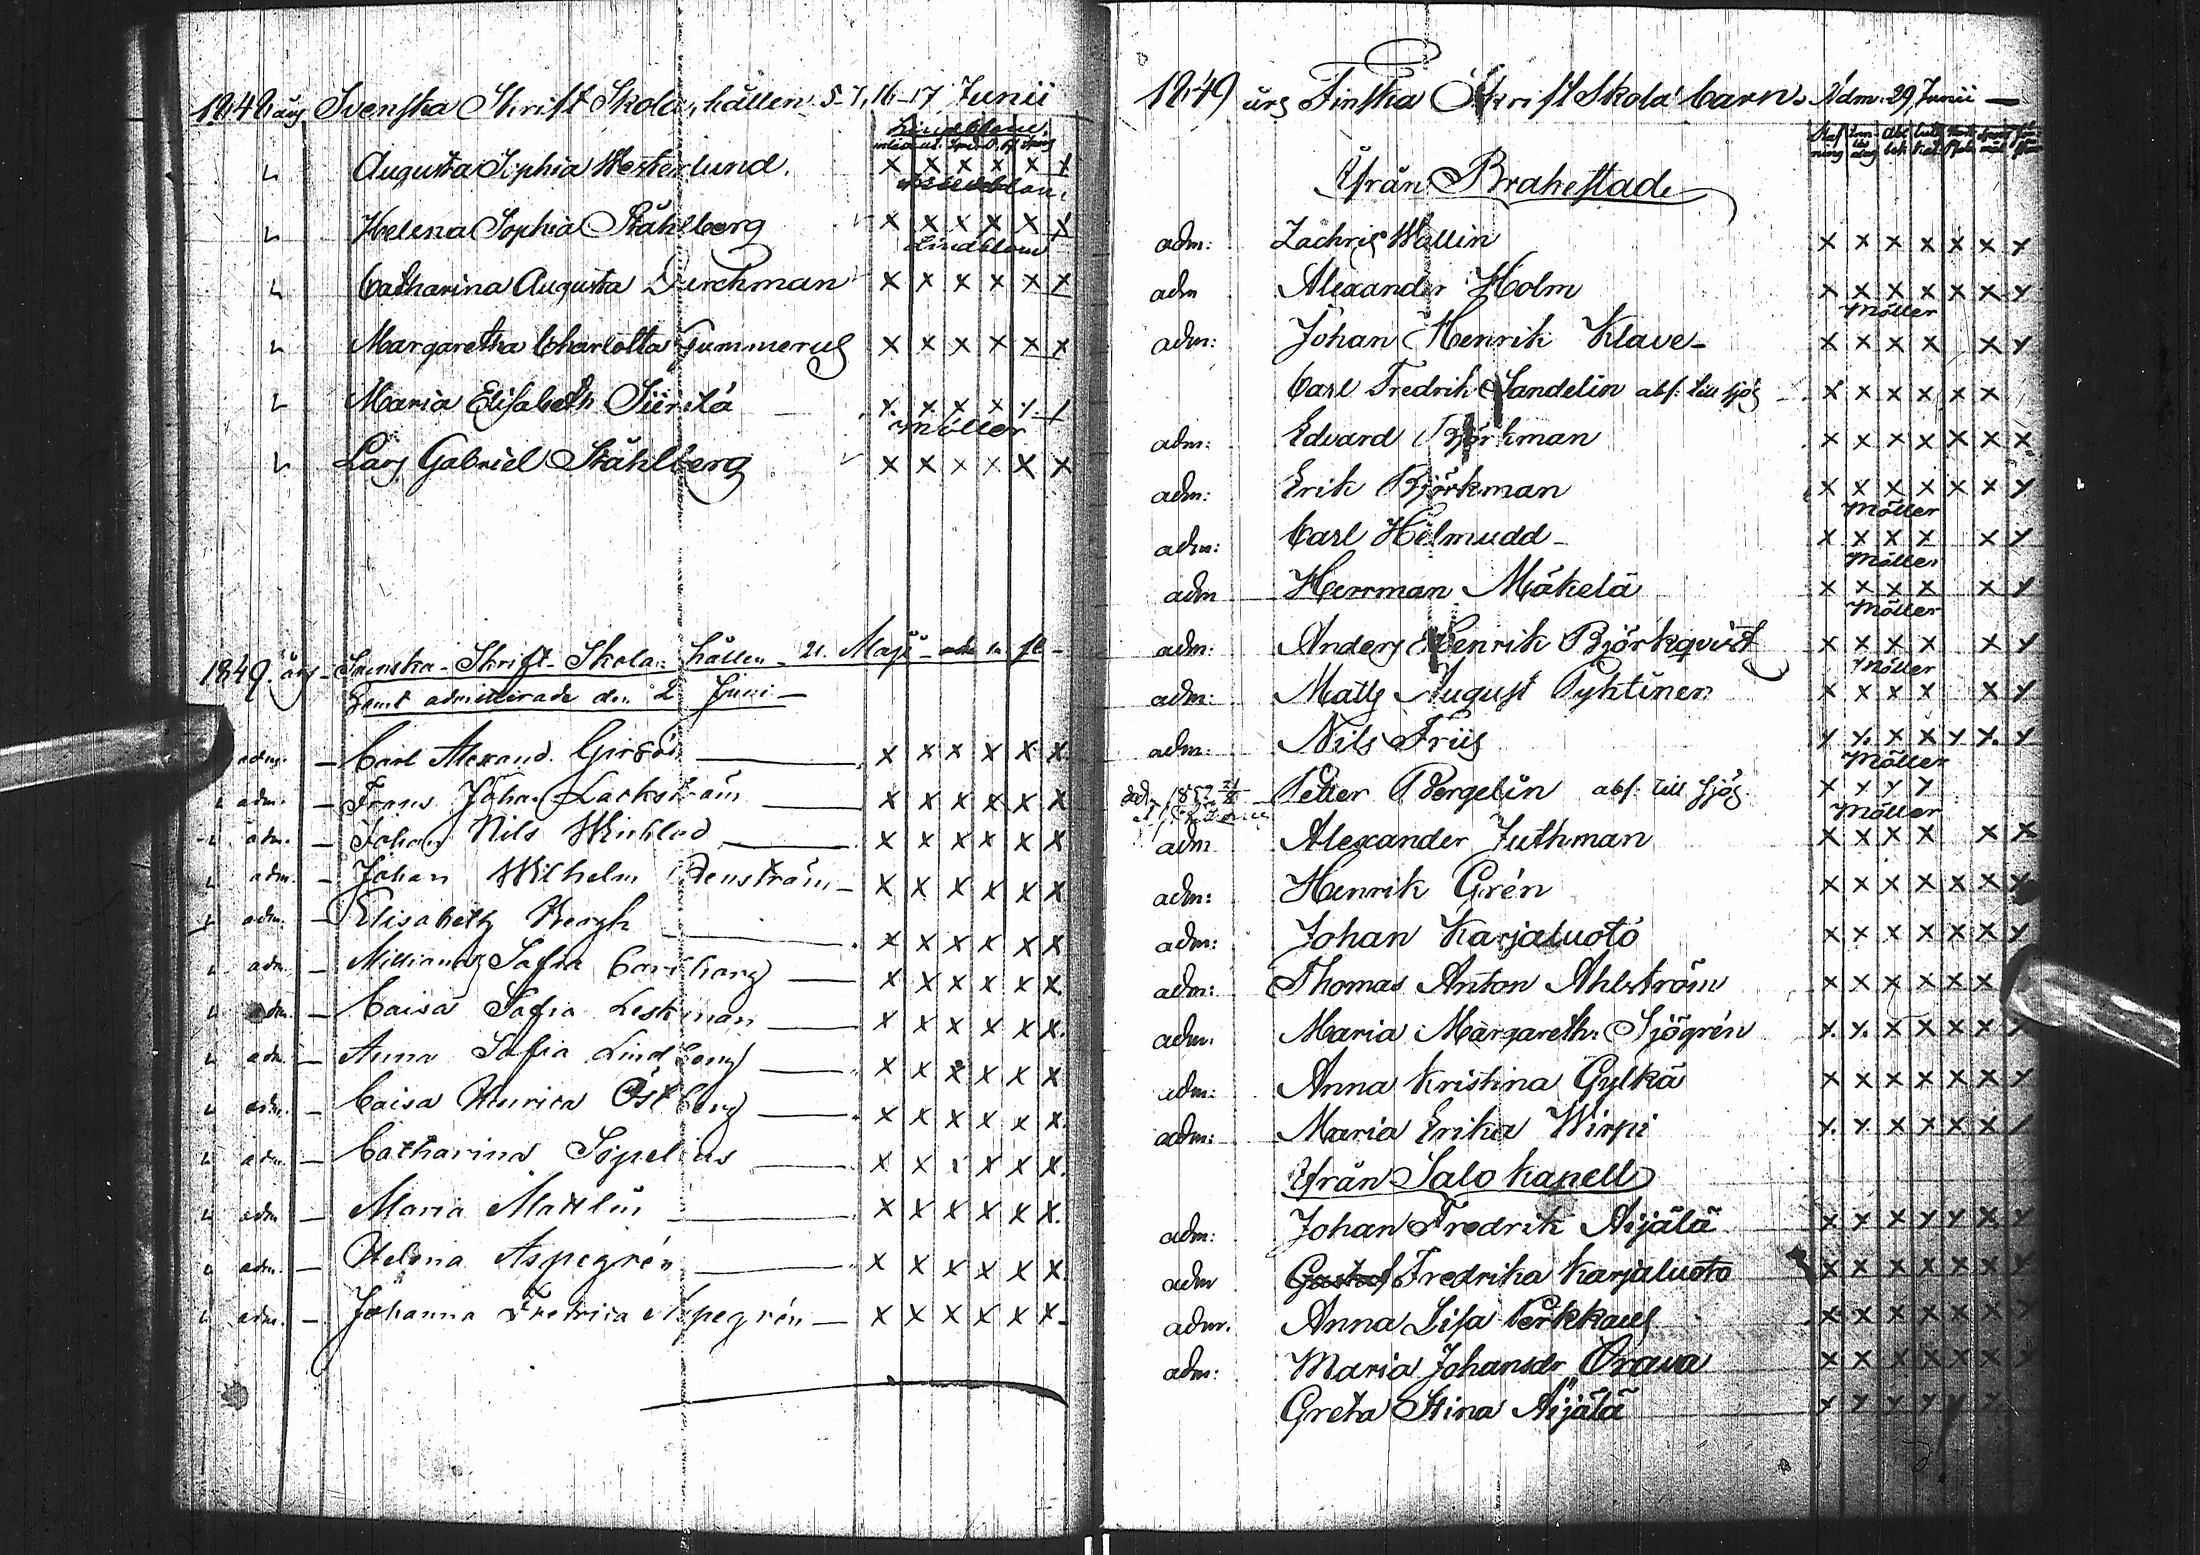 1848 års Svenska Skrift Skola, hållen 5-7, 16-17 Junii
Lindblom.
Augusta Sophia Westerlund.
Lindblom.
Helena Sophia Ståhlberg
Lindblom
Catharina Augusta Durchman
Margaretha Charlotta Gummerus
Maria Elisabeth Siirilä
Möller
Lars Gabriel Ståhlberg
1849 års Svenska Skrift Skola hållen 21 Maji
Samt admitterade den 2 Juni
adm. Carl Alexand.
adm. Frans Johan Lackström
adm. Johan Nils
adm. Johan Wilhelm Renström
adm. Elisabeth Bergh
adm. Sofia Carlberg
adm. Caisa Sofia Leskman
adm. Anna Sofia Lindberg
adm. Caisa Henrica Östberg
adm. Catharina
adm. Maria Mattlin
adm. Helena Aspegrén
adm. Johanna Fredrica Aspegrén
1849 års Finska Skrift Skola barn. Adm: 29 Junii
Ifrån Brahestad
adm: Zachris Wallin
adm Alexander Holm
Möller
adm: Johan Henrik Klave
Carl Fredrik Sandelin abs: till sjös
adm: Edvard Björkman
adm: Erik Björkman
Möller
adm: Carl Helmudd
Möller
adm Herrman Mäkelä
Möller
adm: Anders Henrik Björkqvist
Möller
adm: Matts August Pyhtinen
adm: Nils Friis
Möller
1852 Petter Bergelin abs: till sjös
Möller
adm Alexander Juthman
adm: Henrik Grén
adm: Johan Karjaluoto
adm: Thomas Anton Ahlström
adm. Maria Margareth: Sjögrén
adm: Anna Kristina Gylkä
adm: Maria Erika Wirpi
Ifrån Salo Kapell
adm: Johan Fredrik Äijälä
adm Gustaf Fredrika Karjaluoto
adm. Anna Lisa
adm: Maria Johansdr Orava
Greta Stina Äijälä